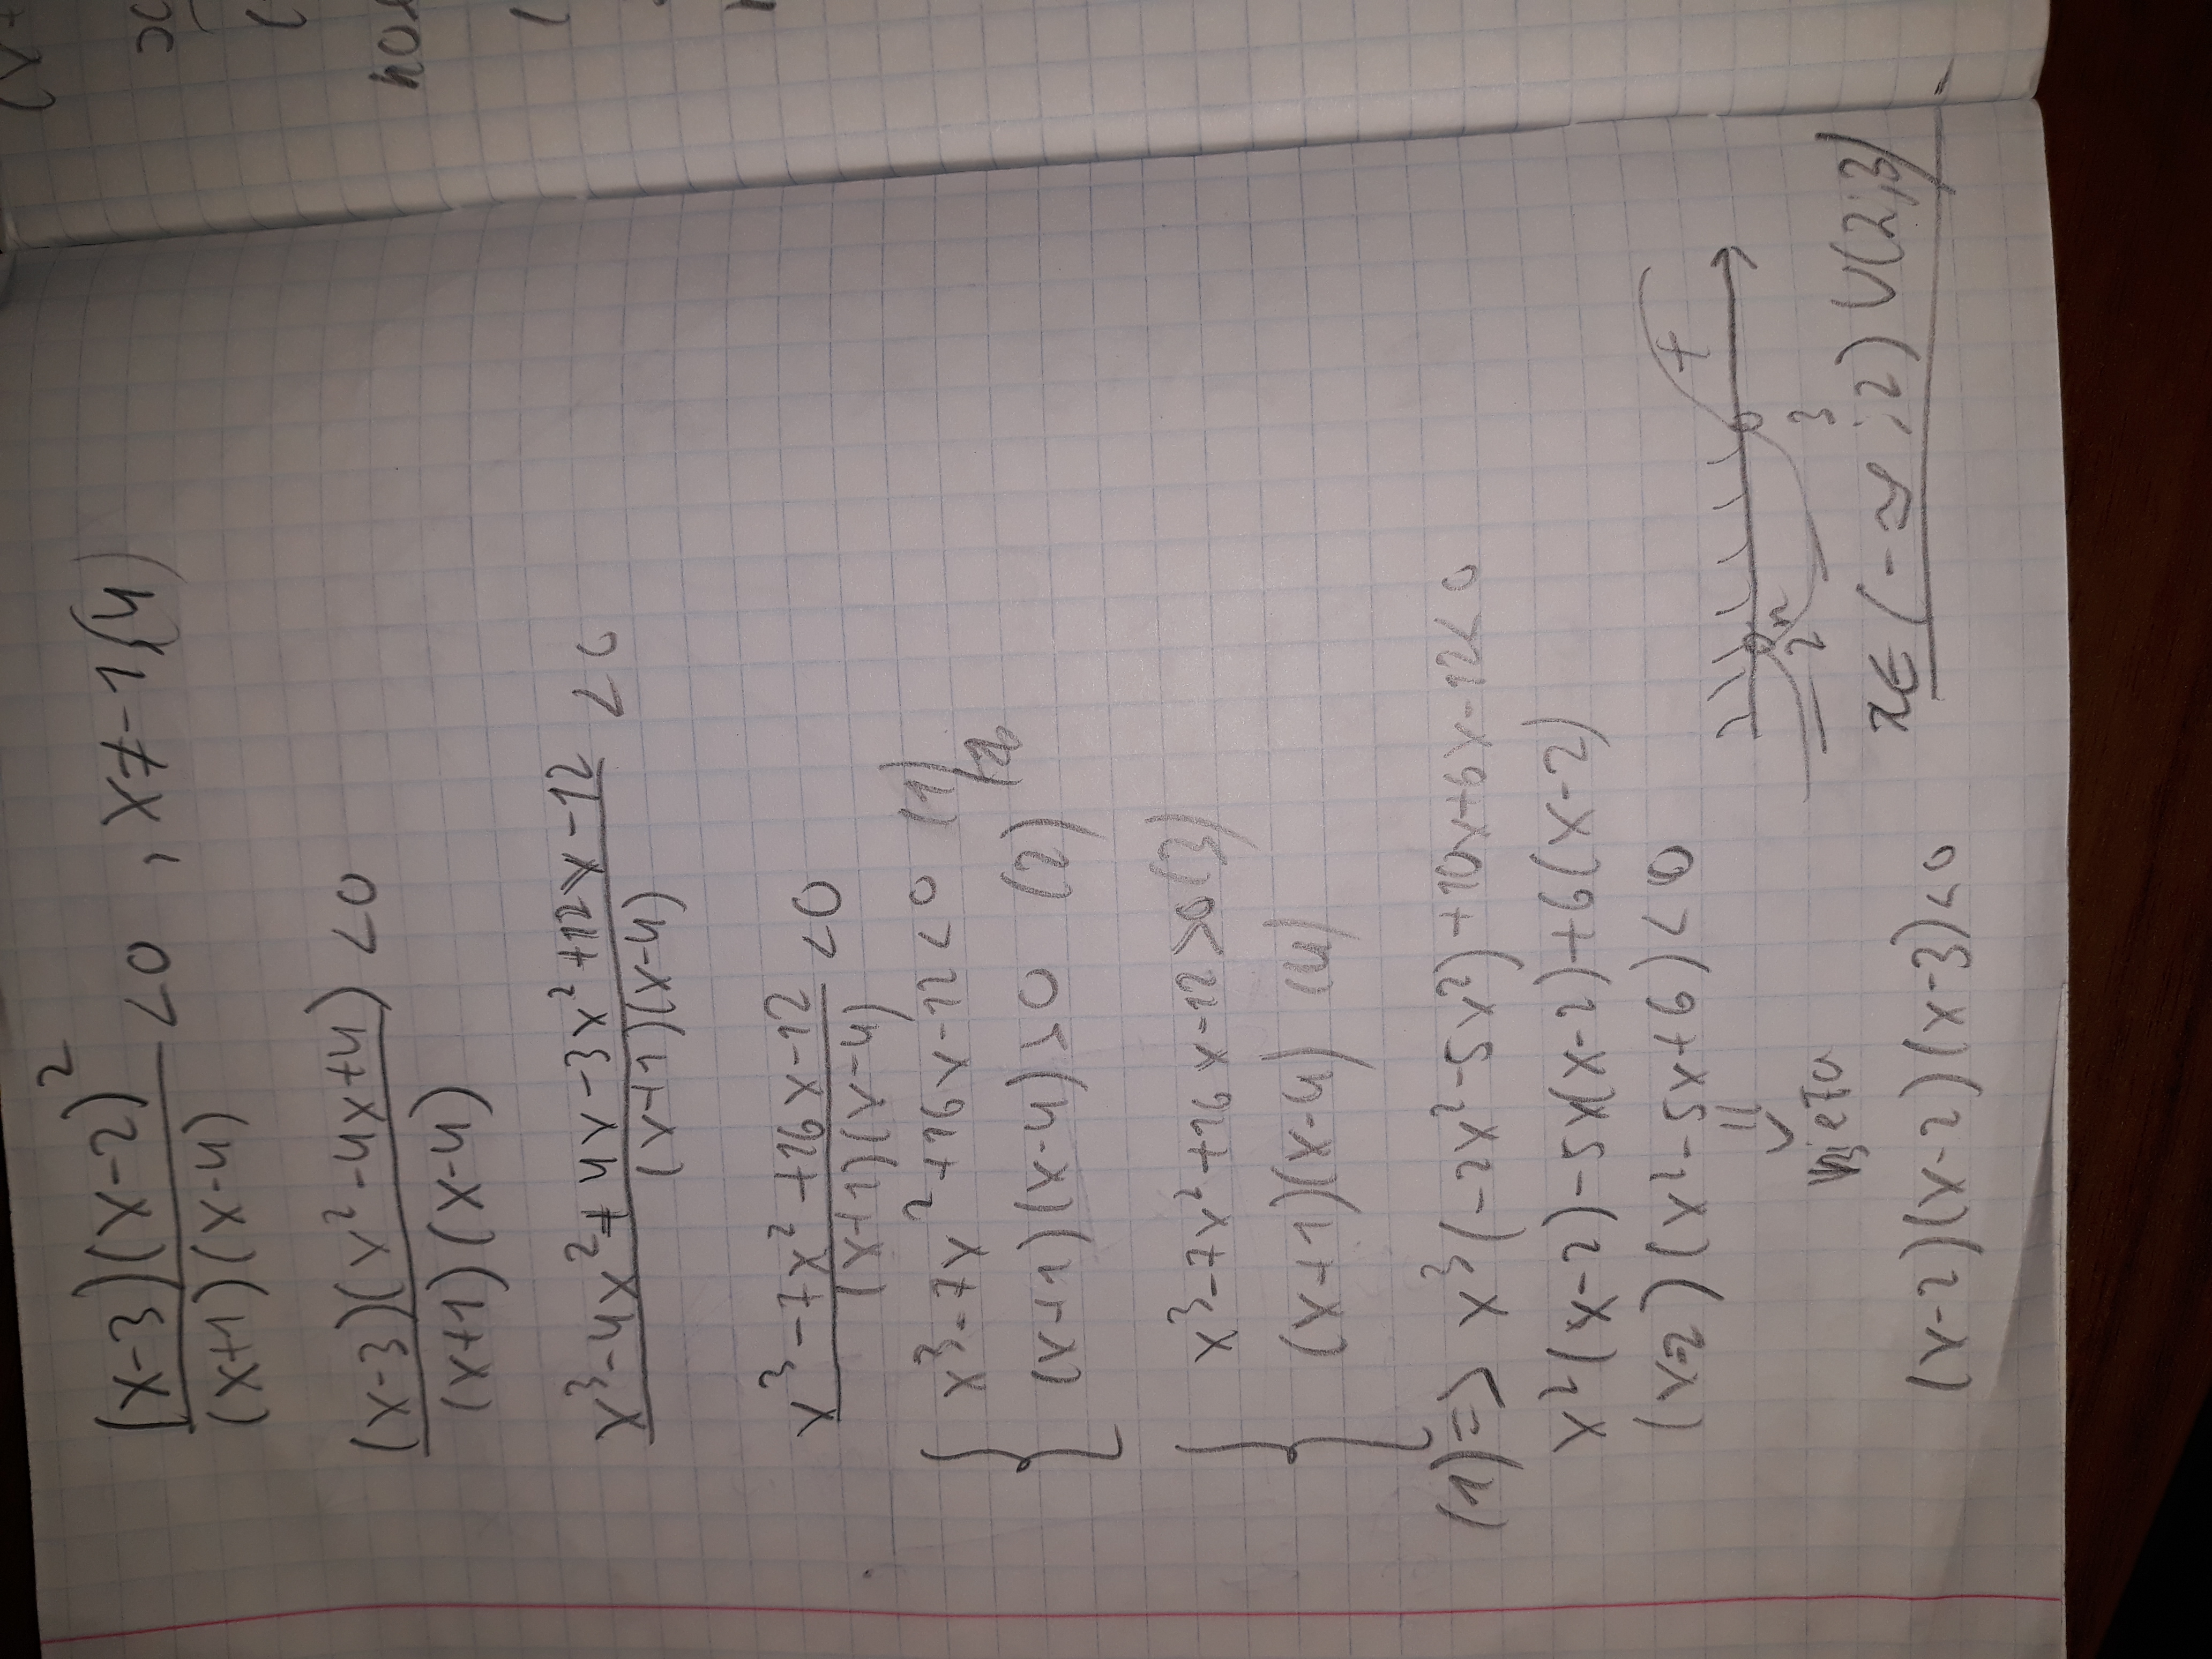 (x-3)(x-2)² / (x+1)(x-4) <0 , x≠-1(4)
(x-3)(x²-4x+4) / (x+1)(x-4) <0
x³-4x²+4x-3x²+12x-12 / (x+1)(x-4) <0
x³-7x²+16x-12 / (x+1)(x-4) <0
{ x³-7x²+16x-12<0 (1)
(x+1)(x-4)>0 (2)
{ x³-7x²+16x-12>0 (3)
(x+1)(x-4) (4)
(1)=> x³(-2x²-5x²)+10x+6x-12<0
x²(x-2)-5x(x-2)+6(x-2)
(x-2)(x²-5x+6)<0
+
2 3
(x-2)(x-2)(x-3)<0
x∈(-∞;2)∪(2;3)